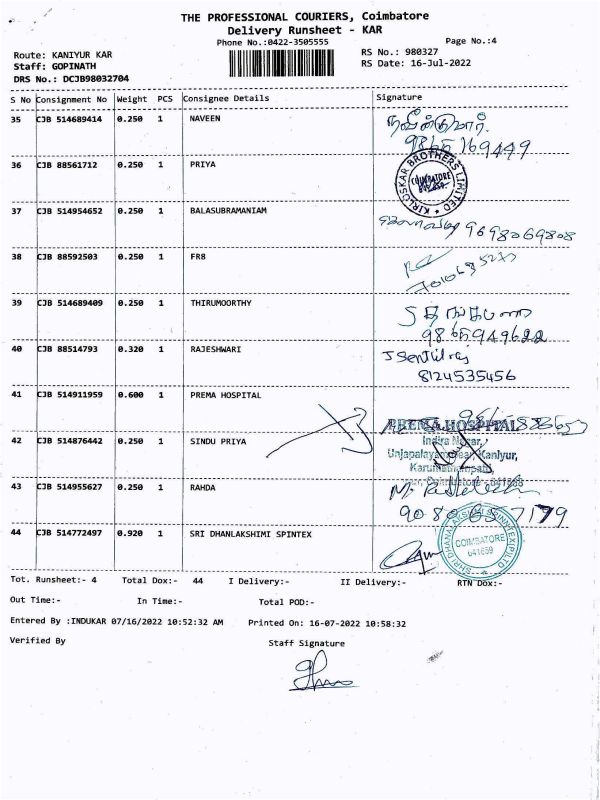 THE PROFESSIONAL COURIERS, Coimbatore
Delivery Runsheet - KAR
Phone No.:0422-3505555
Page No.:4
Route: KANIYUR KAR
RS No.: 980327
Staff: GOPINATH
RS Date: 16-Jul-2022
DRS No.: DCJB98032704
S No Consignment No Weight PCS Consignee Details Signature
35 CJB 514689414 0.250 1 NAVEEN
36 CJB 88561712 0.250 1 PRIYA
KIRLOSKAR BROTHERS LIMITED
COIMBATORE
37 CJB 514954652 0.250 1 BALASUBRAMANIAM
9698069808
38 CJB 88592503 0.250 1 FR8
39 CJB 514689409 0.250 1 THIRUMOORTHY
40 CJB 88514793 0.320 1 RAJESHWARI J Senthilraj
8124535456
41 CJB 514911959 0.600 1 PREMA HOSPITAL
PREMA HOSPITAL
42 CJB 514876442 0.250 1 SINDU PRIYA
Indira Nagar,
Kaniyur,
43 CJB 514955627 0.250 1 RAHDA
44 CJB 514772497 0.920 1 SRI DHANLAKSHIMI SPINTEX
COIMBATORE
641659
Tot. Runsheet:- 4 Total Dox:- 44 I Delivery:- II Delivery:- RTN Dox:-
Out Time:- In Time:- Total POD:-
Entered By :INDUKAR 07/16/2022 10:52:32 AM Printed On: 16-07-2022 10:58:32
Verified By Staff Signature